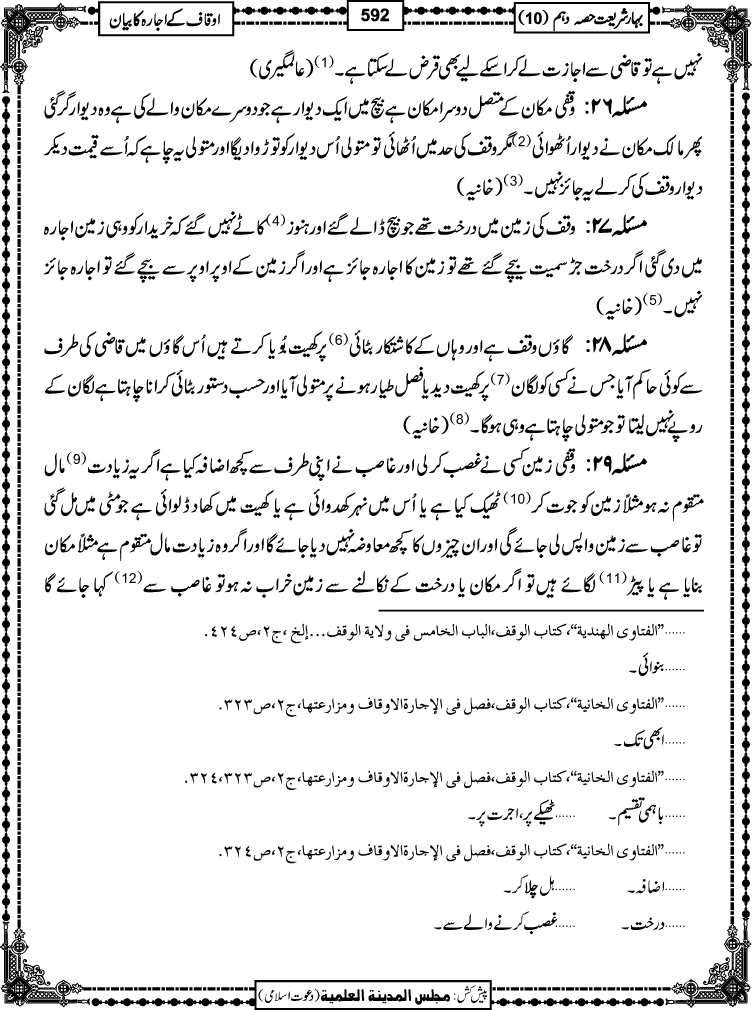 بہارشریعت حصہ دہم (10)
592
اوقاف کے اجارہ کا بیان
نہیں ہے تو قاضی سے اجازت لے کر اسکے لیے بھی قرض لے سکتا ہے۔(1) (عالمگیری)
مسئلہ ۲۶: وقفی مکان کے متصل دوسرا مکان ہے بیچ میں ایک دیوار ہے جو دوسرے مکان والے کی ہے وہ دیوار گر گئی
پھر مالک مکان نے دیوار اُٹھوائی(2) مگر وقف کی حد میں اُٹھائی تو متولی اُس دیوار کو توڑوا دیگا اور متولی یہ چاہے کہ اُسے قیمت دیکر
دیوار وقف کی کر لے یہ جائز نہیں۔(3) (خانیہ)
مسئلہ ۲۷: وقف کی زمین میں درخت تھے جو بیچ ڈالے گئے اور ہنوز(4) کاٹے نہیں گئے کہ خریدار کو وہی زمین اجارہ
میں دی گئی اگر درخت جڑ سمیت بیچے گئے تھے تو زمین کا اجارہ جائز ہے اور اگر زمین کے اوپر اوپر سے بیچے گئے تو اجارہ جائز
نہیں۔(5) (خانیہ)
مسئلہ ۲۸: گاؤں وقف ہے اور وہاں کے کاشتکار بٹائی(6) پر کھیت بُویا کرتے ہیں اُس گاؤں میں قاضی کی طرف
سے کوئی حاکم آیا جس نے کسی کو لگان(7) پر کھیت دیدیا فصل طیار ہونے پر متولی آیا اور حسب دستور بٹائی کرانا چاہتا ہے لگان کے
روپے نہیں لیتا تو جو متولی چاہتا ہے وہی ہوگا۔(8) (خانیہ)
مسئلہ ۲۹: وقفی زمین کسی نے غصب کر لی اور غاصب نے اپنی طرف سے کچھ اضافہ کیا ہے اگر یہ زیادت(9) مال
متقوم نہ ہو مثلاً زمین کو جوت کر(10) ٹھیک کیا ہے یا اُس میں نہر کھدوائی ہے یا کھیت میں کھاد ڈلوائی ہے جو مٹی میں مل گئی
تو غاصب سے زمین واپس لی جائے گی اور ان چیزوں کا کچھ معاوضہ نہیں دیا جائے گا اور اگر وہ زیادت مال متقوم ہے مثلاً مکان
بنایا ہے یا پیڑ(11) لگائے ہیں تو اگر مکان یا درخت کے نکالنے سے زمین خراب نہ ہو تو غاصب سے(12) کہا جائے گا
......”الفتاوی الهندية“،کتاب الوقف،الباب الخامس فی ولاية الوقف...إلخ،ج۲،ص۴۲۴.
......بنوائی۔
......”الفتاوی الخانية“،کتاب الوقف،فصل فی الإجارةالاوقاف ومزارعتها،ج۲،ص۳۲۳.
......ابھی تک۔
......”الفتاوی الخانية“،کتاب الوقف،فصل فی الإجارةالاوقاف ومزارعتها،ج۲،ص۳۲۳،۳۲۴.
......باہمی تقسیم۔ ......ٹھیکے پر، اجرت پر۔
......”الفتاوی الخانية“،کتاب الوقف،فصل فی الإجارةالاوقاف ومزارعتها،ج۲،ص۳۲۴.
......اضافہ۔ ......ہل چلا کر۔
......درخت۔ ......غصب کرنے والے سے۔
پیش کش: مجلس المدینة العلمیة (دعوت اسلامی)